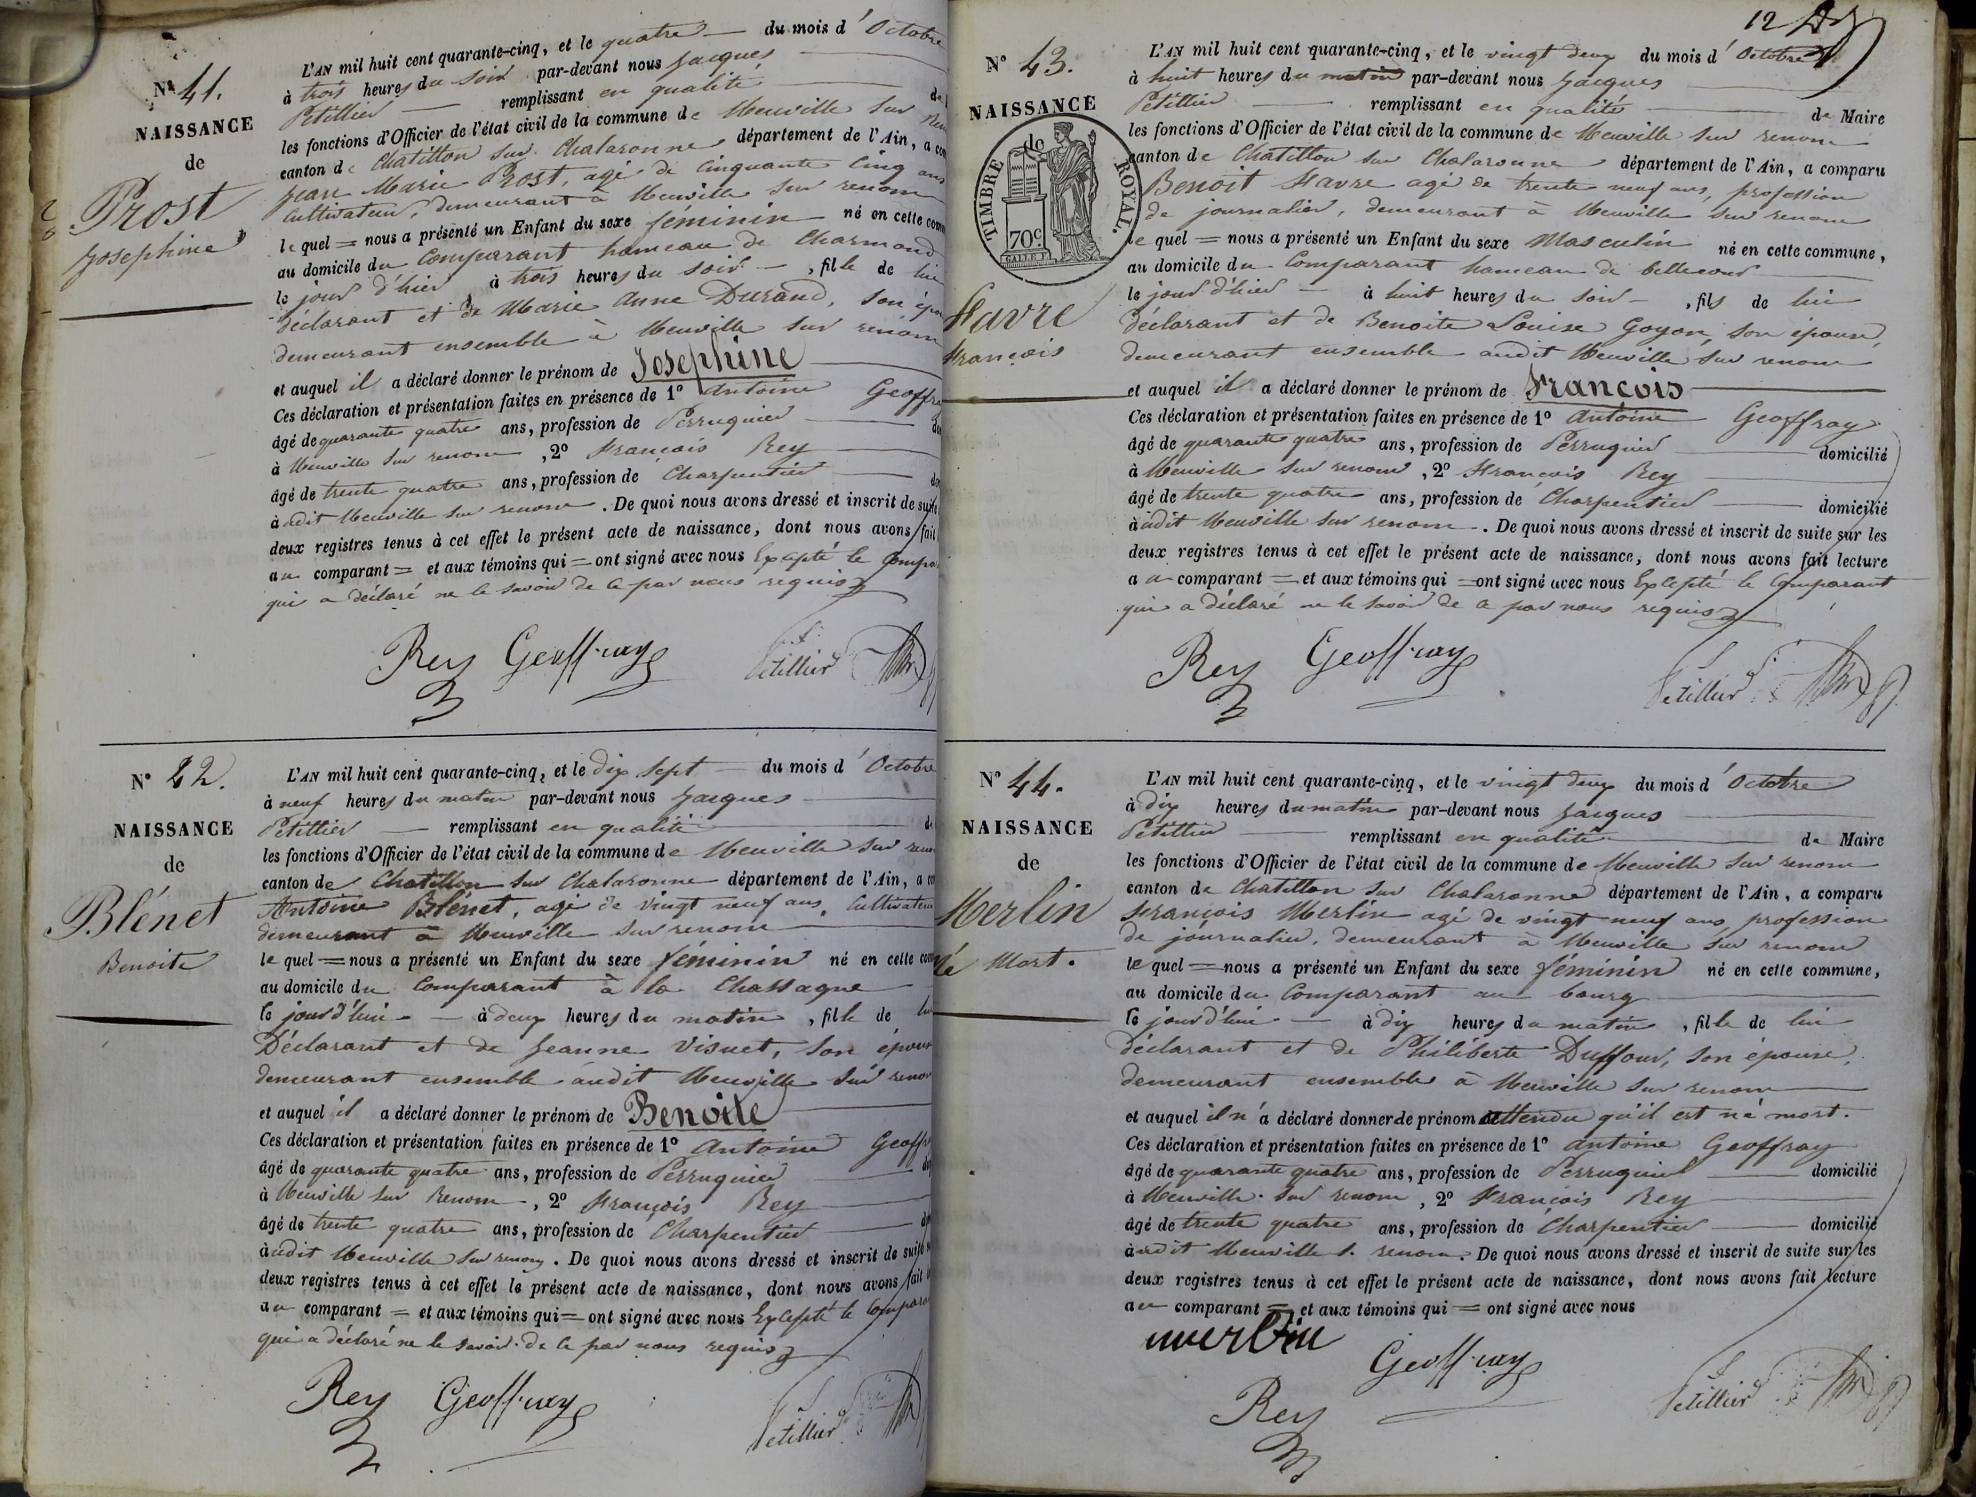 N° 41.
NAISSANCE
de
Prost
Josephine
L'AN mil huit cent quarante-cinq, et le quatre du mois d'Octobre
à trois heures du soir par-devant nous Jacques
Petillier remplissant en qualité de
les fonctions d'Officier de l'état civil de la commune de Neuville sur
canton de Chatillon sur Chalaronne département de l'Ain, a
Jean Marie Prost, agé de Cinquante Cinq ans
Cultivateur, demeurant à Neuville sur renom
le quel = nous a présenté un Enfant du sexe féminin né en cette
au domicile du Comparant hameau de Charmond
le jour d'hier à trois heures du soir, fille de lui
déclarant et de Marie Anne Durand, son
demeurant ensemble à Neuville sur renom
et auquel il a déclaré donner le prénom de Josephine
Ces déclaration et présentation faites en présence de 1° Antoine
âgé de quarante quatre ans, profession de Perruquier
à Neuville sur renom, 2° François Rey
âgé de trente quatre ans, profession de Charpentier
à udit Neuville sur renom. De quoi nous avons dressé et inscrit de suite
deux registres tenus à cet effet le présent acte de naissance, dont nous avons fait
au comparant = et aux témoins qui = ont signé avec nous Excepté le
qui a déclaré ne le savoir de ce par nous requis
Rey Geoffray Petillier
N° 22.
NAISSANCE
de
Blénet
Benoite
L'AN mil huit cent quarante-cinq, et le dix sept du mois d'Octobre
à neuf heures du matin par-devant nous Jacques
Petillier remplissant en qualité
les fonctions d'Officier de l'état civil de la commune de Neuville sur
canton de Chatillon sur Chalaronne département de l'Ain, a
Antoine Blénet, agé de vingt neuf ans, Cultivateur
demeurant à Neuville sur renom
le quel = nous a présenté un Enfant du sexe féminin né en cette
au domicile du Comparant à la Chassagne
le jour d'hui à deux heures du matin, fille de
Déclarant et de Jeanne Visuet, son
demeurant ensemble audit Neuville sur
et auquel il a déclaré donner le prénom de Benoite
Ces déclaration et présentation faites en présence de 1° Antoine
âgé de quarante quatre ans, profession de Perruquier
à Neuville sur Renom, 2° François Rey
âgé de trente quatre ans, profession de Charpentier
à udit Neuville sur renom. De quoi nous avons dressé et inscrit de suite
deux registres tenus à cet effet le présent acte de naissance, dont nous avons fait
au comparant = et aux témoins qui = ont signé avec nous Excepté le
qui a déclaré ne le savoir de ce par nous requis
Rey Geoffray Petillier
12
N° 43.
NAISSANCE
de
TIMBRE ROYAL.
70c
Favre
François
L'AN mil huit cent quarante-cinq, et le vingt deux du mois d'Octobre
à huit heures du matin par-devant nous Jacques
Petillier remplissant en qualité de Maire
les fonctions d'Officier de l'état civil de la commune de Neuville sur renom
canton de Chatillon sur Chalaronne département de l'Ain, a comparu
Benoit Favre agé de trente neuf ans, profession
de journalier, demeurant à Neuville sur renom
le quel = nous a présenté un Enfant du sexe Masculin né en cette commune,
au domicile du Comparant hameau de bellecour
le jour d'hier à huit heures du soir, fils de lui
déclarant et de Benoite Louise Goyon, son épouse,
demeurant ensemble audit Neuville sur renom
et auquel il a déclaré donner le prénom de François
Ces déclaration et présentation faites en présence de 1° Antoine Geoffray
âgé de quarante quatre ans, profession de Perruquier domicilié
à Neuville sur renom, 2° François Rey
âgé de trente quatre ans, profession de Charpentier domicilié
à udit Neuville sur renom. De quoi nous avons dressé et inscrit de suite sur les
deux registres tenus à cet effet le présent acte de naissance, dont nous avons fait lecture
au comparant = et aux témoins qui = ont signé avec nous Excepté le Comparant
qui a déclaré ne le savoir de ce par nous requis
Rey Geoffray Petillier
N° 44.
NAISSANCE
de
Merlin
né Mort.
L'AN mil huit cent quarante-cinq, et le vingt deux du mois d'Octobre
à dix heures du matin par-devant nous Jacques
Petillier remplissant en qualité de Maire
les fonctions d'Officier de l'état civil de la commune de Neuville sur renom
canton de Chatillon sur Chalaronne département de l'Ain, a comparu
François Merlin agé de vingt neuf ans, profession
de journalier, demeurant à Neuville sur renom
le quel = nous a présenté un Enfant du sexe féminin né en cette commune,
au domicile du Comparant au bourg
le jour d'hui à dix heures du matin, fille de lui
déclarant et de Philiberte Duffour, son épouse,
demeurant ensemble à Neuville sur renom
et auquel il n'a déclaré donner de prénom attendu qu'il est né mort.
Ces déclaration et présentation faites en présence de 1° Antoine Geoffray
âgé de quarante quatre ans, profession de Perruquier domicilié
à Neuville sur renom, 2° François Rey
âgé de trente quatre ans, profession de Charpentier domicilié
à udit Neuville s. renom. De quoi nous avons dressé et inscrit de suite sur les
deux registres tenus à cet effet le présent acte de naissance, dont nous avons fait lecture
au comparant = et aux témoins qui = ont signé avec nous
merlin
Geoffray Petillier
Rey